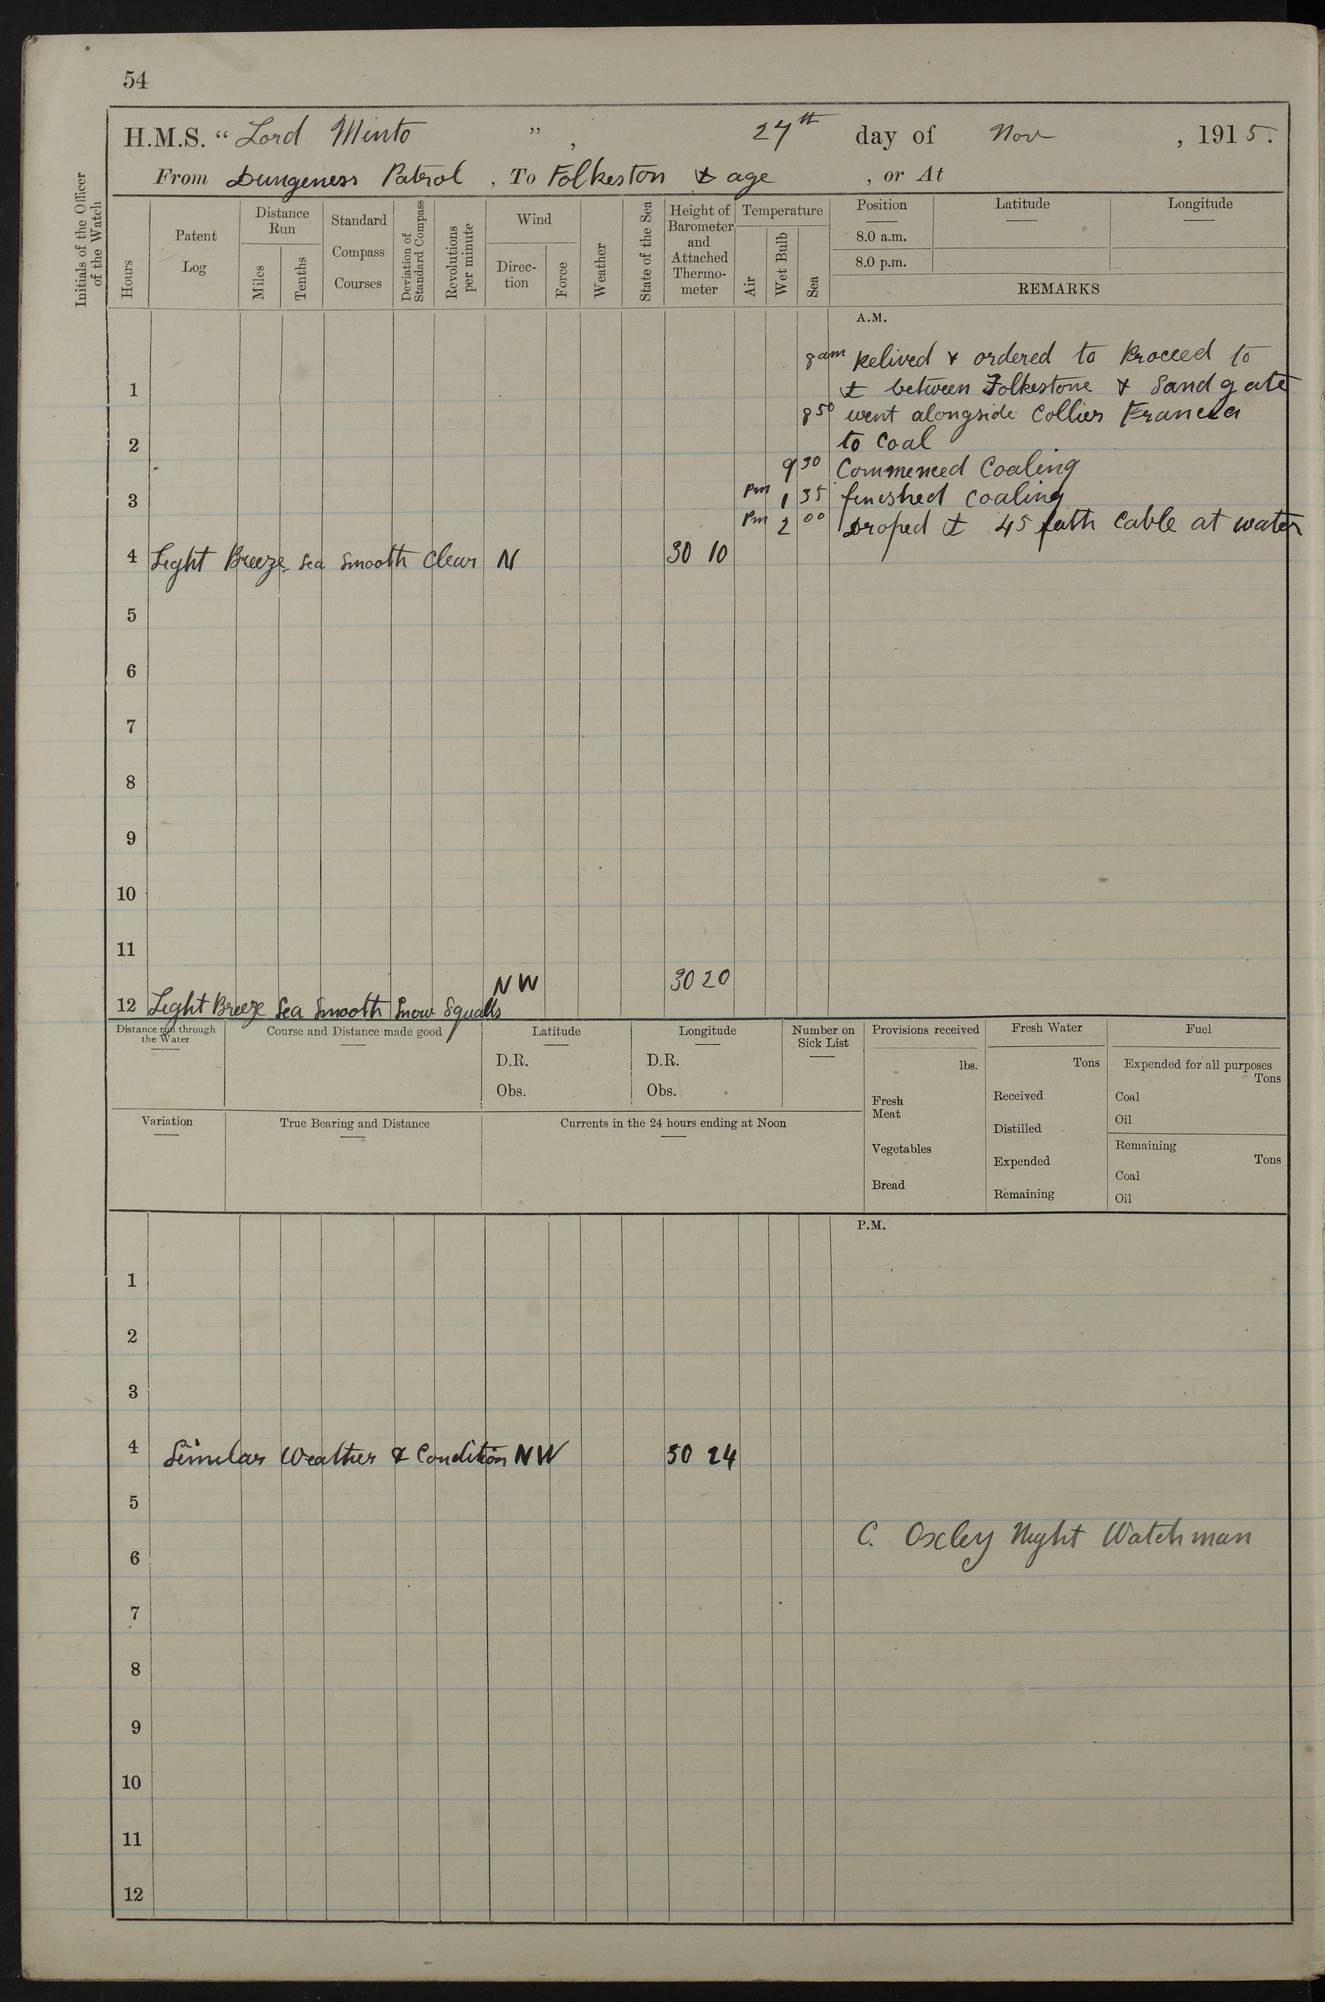 54
H.M.S. “ Lord Minto ” , 27th day of Nov , 1915.
From Dungeness Patrol , To Folkeston ⚓ age , or At
Initials of the Officer of the Watch
Hours
Patent Log
Distance Run
Miles
Tenths
Standard Compass Courses
Deviation of Standard Compass
Revolutions per minute
Wind
Direc-tion
Force
Weather
State of the Sea
Height of Barometer and Attached Thermo-meter
Temperature
Air
Wet Bulb
Sea
Position
Latitude
Longitude
8.0 a.m.
8.0 p.m.
REMARKS
A.M.
8am Relived & ordered to Proceed to
1 ⚓ between Folkestone & Sandgate
8 50 went alongside Collier
2 to Coal
9 30 Commenced Coaling
3 Pm 1 35 finished Coaling
Pm 2 00 Droped ⚓ 45 fath Cable at water
4 Light Breeze Sea Smooth Clear N 30 10
5
6
7
8
9
10
11
NW 30 20
12 Light Breeze Sea Smooth Snow Squalls
Distance run through the Water
Course and Distance made good
Latitude
D.R.
Obs.
Longitude
D.R.
Obs.
Number on Sick List
Provisions received
lbs.
Fresh Meat
Vegetables
Bread
Fresh Water
Tons
Received
Distilled
Expended
Remaining
Fuel
Expended for all purposes
Tons
Coal
Oil
Remaining
Tons
Coal
Oil
Variation
True Bearing and Distance
Currents in the 24 hours ending at Noon
P.M.
1
2
3
4 Similar Weather & Condition NW 30 24
5
C. Oxley Night Watchman
6
7
8
9
10
11
12